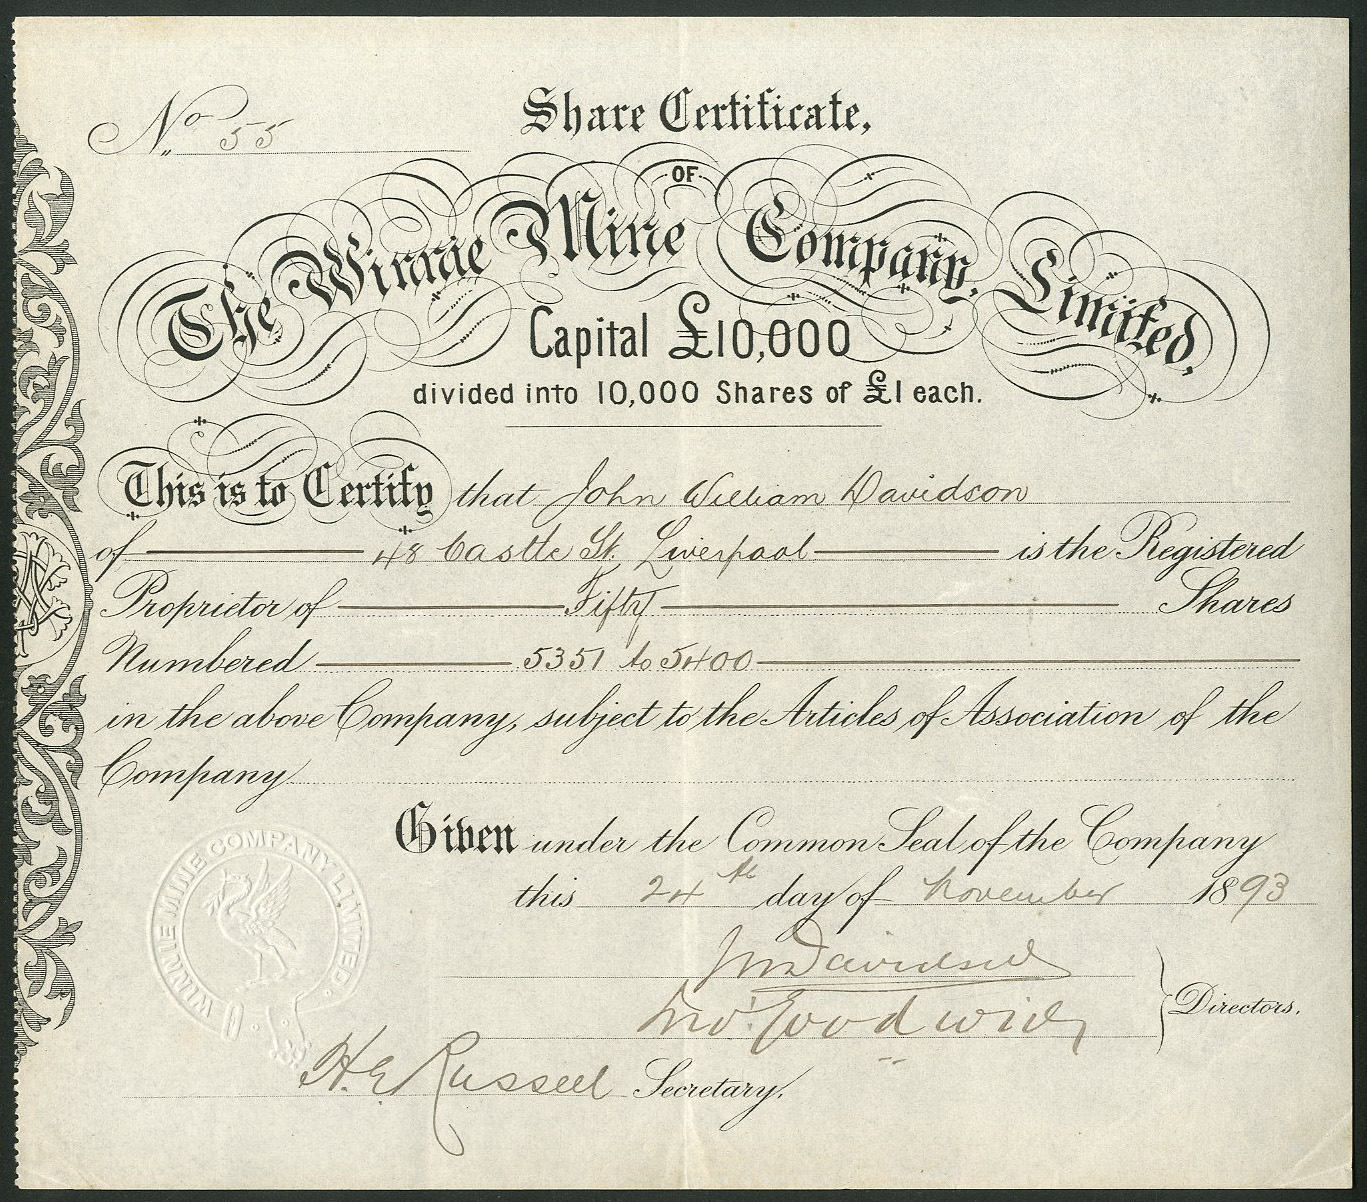 No 55
Share Certificate,
OF
The Winnie Mine Company, Limited,
Capital £10,000
divided into 10,000 Shares of £1 each.
This is to Certify that John William Davidson
of 48 Castle St. Liverpool is the Registered
Proprietor of Fifty Shares
Numbered 5351 to 5400
in the above Company, subject to the Articles of Association of the
Company
Given under the Common Seal of the Company
this 24th day of November 1893
WINNIE MINE COMPANY LIMITED.
JWDavidson
Jno. Goodwin
Directors.
H. E. Russell Secretary.